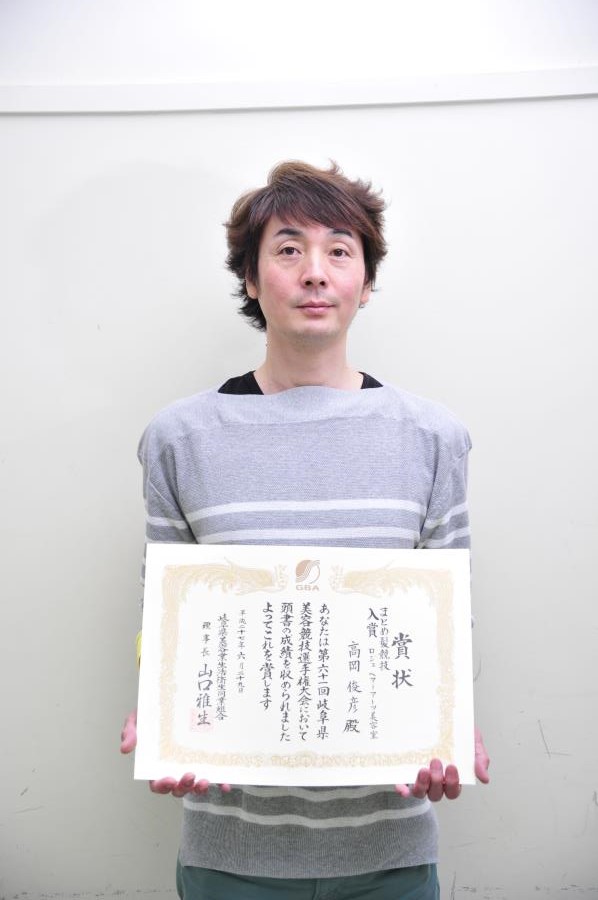 GBA
賞状
まとめ髪競技
入賞
ロシェ ヘアーアーツ美容室
高岡俊彦殿
あなたは第六十一回岐阜県
美容競技選手権大会において
頭書の成績を収められました
よってこれを賞します
平成二十七年六月二十九日
岐阜県美容業生活衛生同業組合
理事長 山口雅生